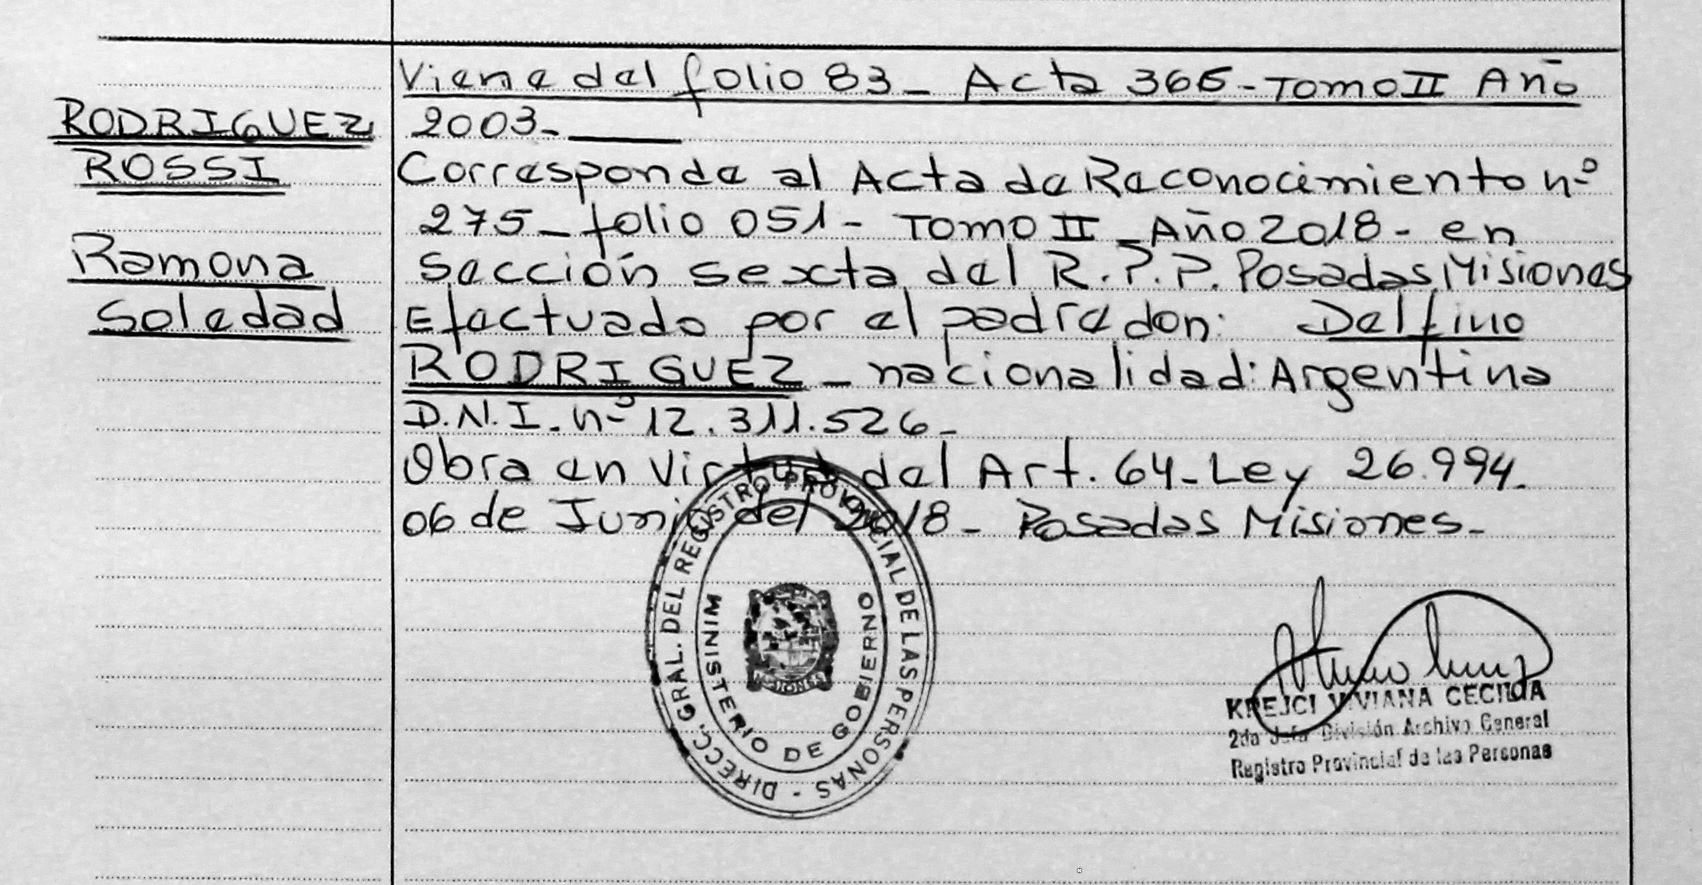 RODRIGUEZ
ROSSI
Ramona
Soledad
Viene del folio 83 - Acta 365 - Tomo II Año
2003.-
Corresponde al Acta de Reconocimiento nº
275 - folio 051 - Tomo II - Año 2018 - en
Sección sexta del R.P.P. Posadas, Misiones
Efectuado por el padre don: Delfino
RODRIGUEZ - nacionalidad: Argentina
D.N.I. nº 12.311.526 -
Obra en virtud del Art. 64 - Ley 26.994.
06 de Junio del 2018 - Posadas Misiones -
DIRECC. GRAL. DEL REGISTRO PROVINCIAL DE LAS PERSONAS -
MINISTERIO DE GOBIERNO
MISIONES
KREJCI VIVIANA CECILIA
2da Jefa División Archivo General
Registro Provincial de las Personas